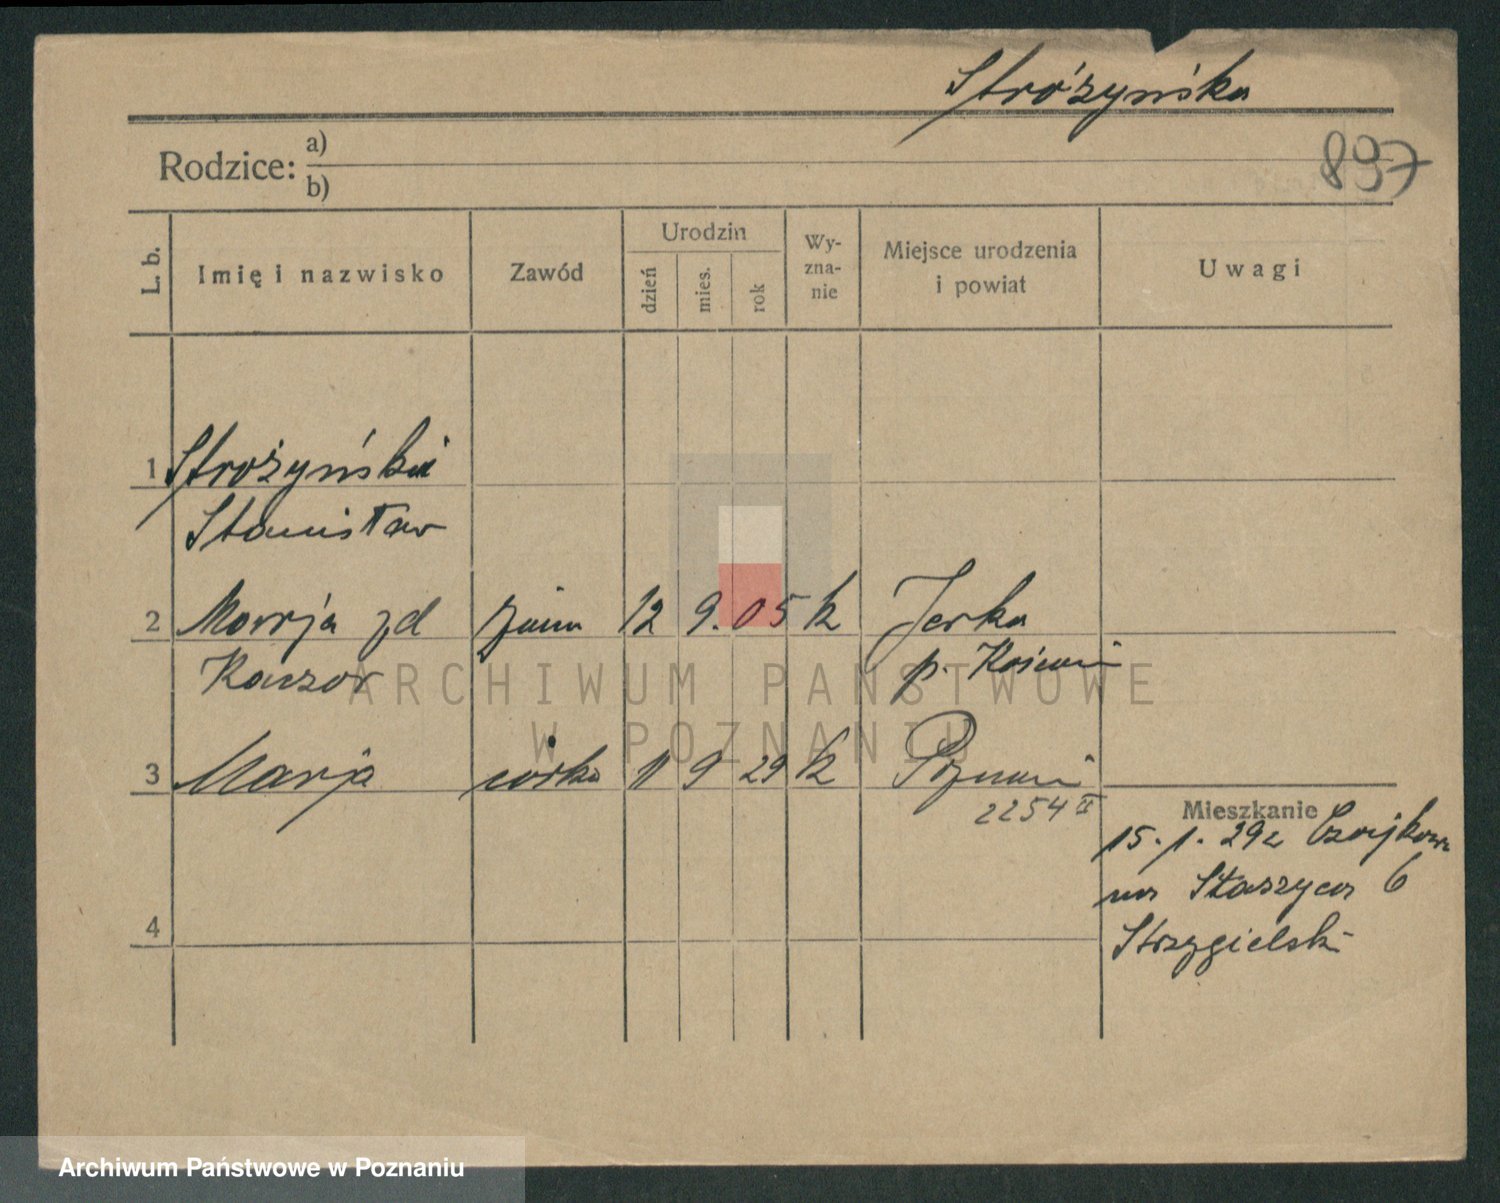 Stróżyńska
897
Rodzice: a)
b)
L. b.
Imię i nazwisko
Zawód
Urodzin
dzień
mies.
rok
Wy-
zna-
nie
Miejsce urodzenia
i powiat
Uwagi
1 Strożyński
Stanisław
2 Marja zd żona 12 9. 05 k Jerka
Kaczor p. Kościan
3 Marja córka 11 9 29 k Poznań
2254 II
Mieszkanie
15. 1. 29 z
na Staszyca 6
Strzygielski
4
ARCHIWUM PAŃSTWOWE
W POZNANIU
Archiwum Państwowe w Poznaniu